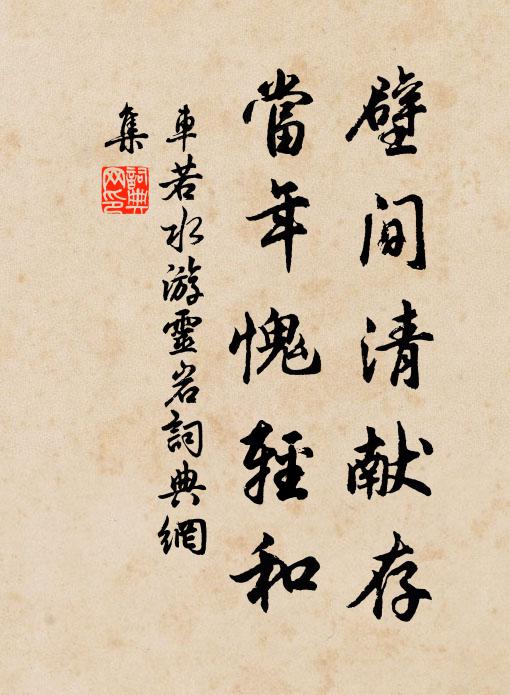 壁间清献存
當年愧輕和
車若水游靈岩詞典網
集
詞典网印